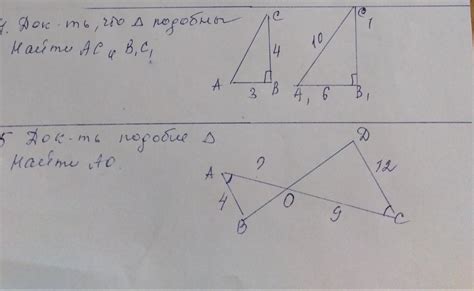 4. Док-ть, что Δ подобны
Найти AC и B₁C₁
C
4
A
3
B
C₁
10
A₁
6
B₁
5 Док-ть подобие Δ
Найти AO.
A
?
4
B
O
D
12
9
C